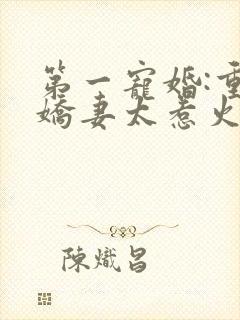 第一寵婚:重
嬌妻太惹火
陳熾昌